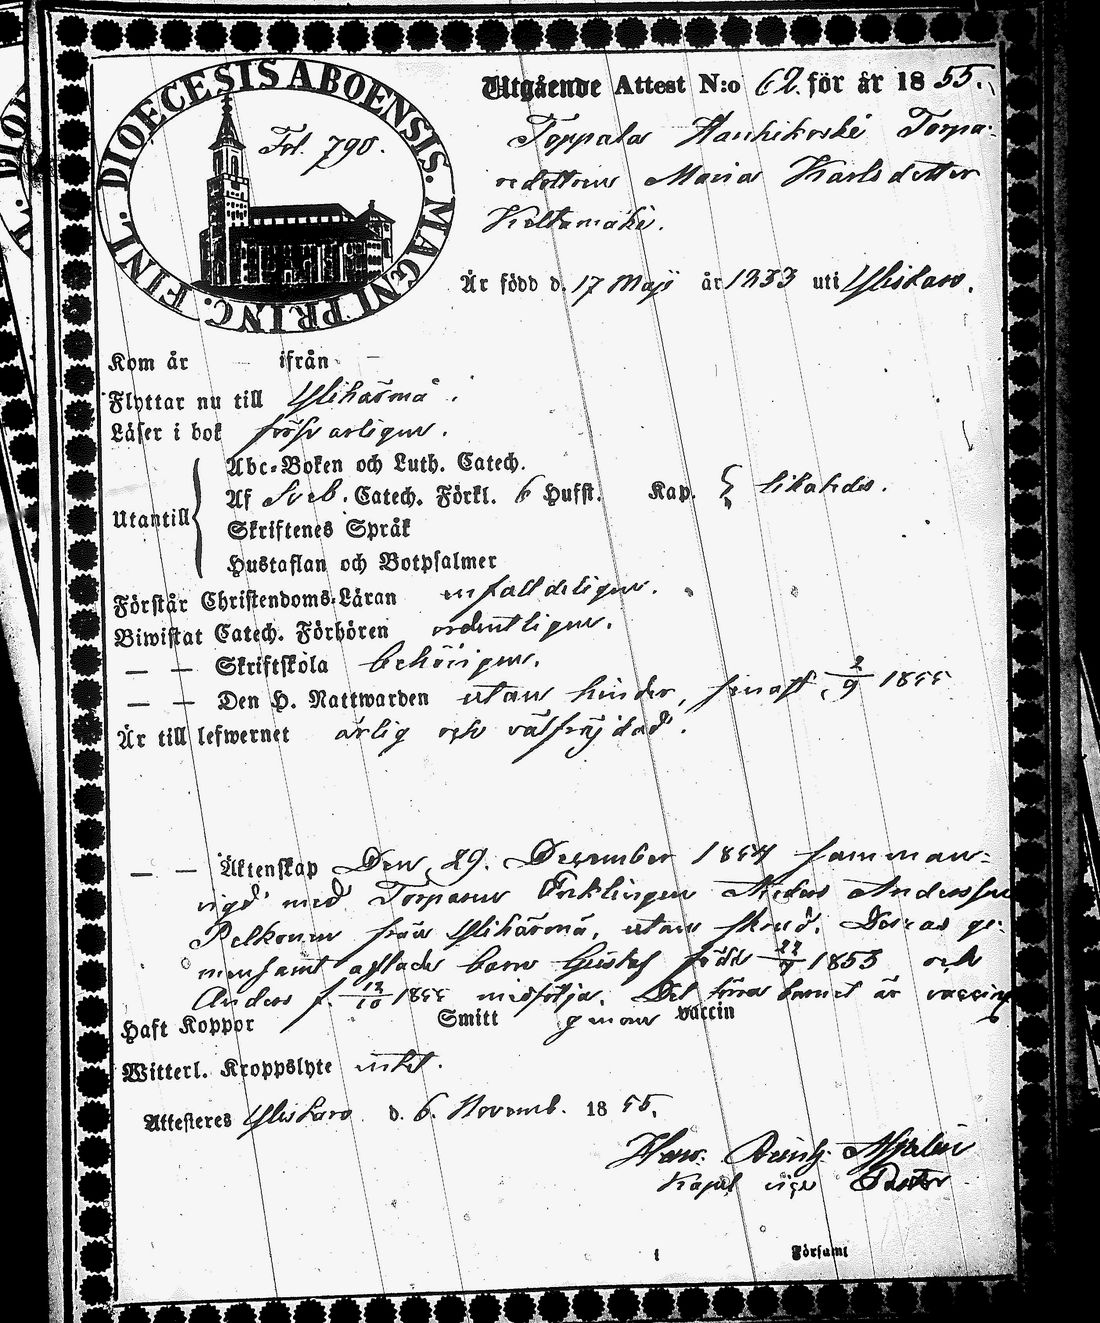 DIOECESIS ABOENSIS. MAGNI PRINC. FINL.
Fol. 790.
Utgående Attest N:o 62. för år 1855.
Toppala Hanhikoski Torpa-
redottren Maria Karlsdotter
Keltamäki.
Är född d. 17 Maji år 1833 uti Ylistaro.
Kom år — ifrån —
Flyttar nu till Ylihärmä.
Läser i bok förswarligen.
Utantill
Abc-Boken och Luth. Catech.
Af Sveb. Catech. Förkl. 6 Hufst. Kap. likaledes.
Skriftenes Språk
Hustaflan och Botpsalmer
Förstår Christendoms-Läran enfalldeligen.
Biwistat Catech. Förhören ordentligen.
— — Skriftskola behörigen.
— — Den H. Nattwarden utan hinder, senast 2/9 1855
Är till lefwernet ärlig och välfräjdad.
— — Äktenskap Den 29. December 1854 samman-
vigd med Torparen Enklingen Anders Andersson
Pelkonen från Ylihärmä, utan skrud. Deras ge-
mensamt aflade barn Gustaf född 1853 och
Anders f. 12/10 1855 medfölja. Det förra barnet är
Haft Koppor Smitt genom vaccin
Witterl. Kroppslyte intet.
Attesteras Ylistaro d. 6. Novemb. 1855.
Kapel vice Pastor
Församl